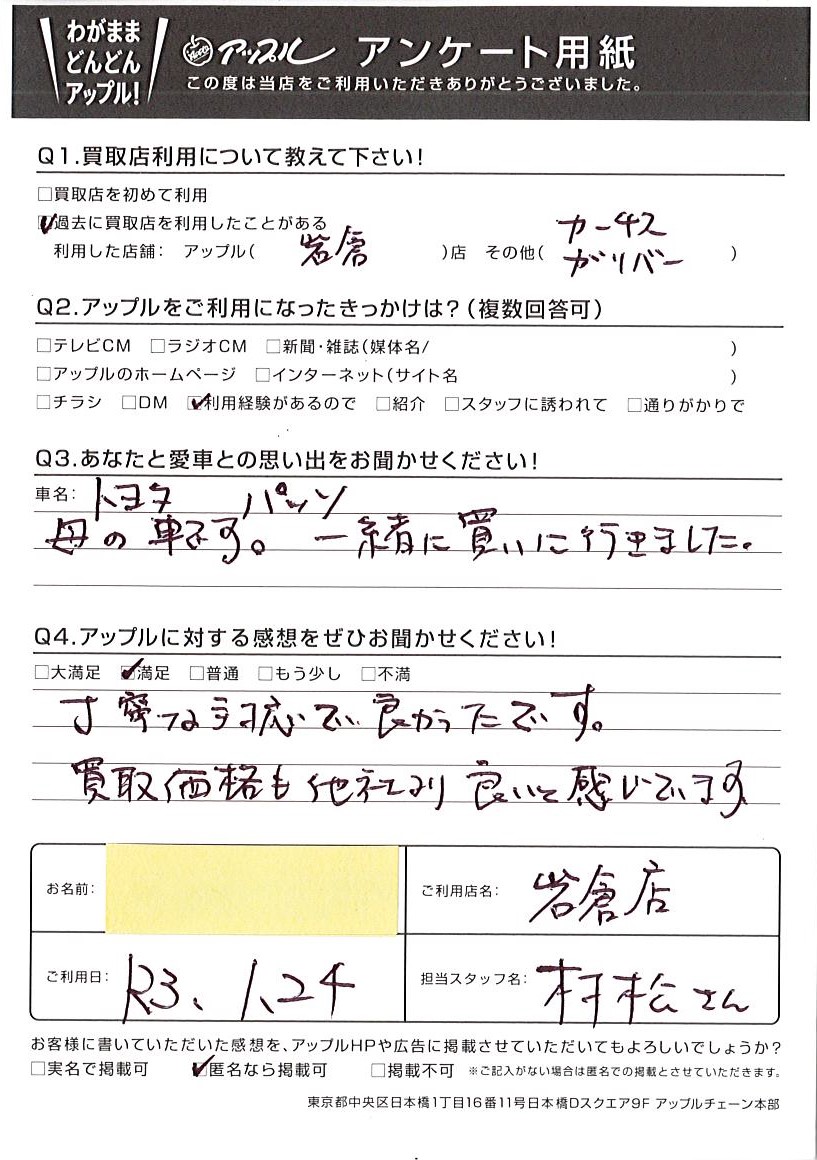 わがまま
どんどん
アップル!
アップル アンケート用紙
この度は当店をご利用いただきありがとうございました。
Q1.買取店利用について教えて下さい!
□買取店を初めて利用
☑過去に買取店を利用したことがある
利用した店舗: アップル( 岩倉 )店 その他( カーチス ガリバー )
Q2.アップルをご利用になったきっかけは?(複数回答可)
□テレビCM □ラジオCM □新聞・雑誌(媒体名/ )
□アップルのホームページ □インターネット(サイト名 )
□チラシ □DM ☑利用経験があるので □紹介 □スタッフに誘われて □通りがかりで
Q3.あなたと愛車との思い出をお聞かせください!
車名: トヨタ パッソ
母の車です。一緒に買いに行きました。
Q4.アップルに対する感想をぜひお聞かせください!
□大満足 ☑満足 □普通 □もう少し □不満
丁寧な対応で良かったです。
買取価格も他社より良いと感じています
お名前:
ご利用店名: 岩倉店
ご利用日: R3、1、24
担当スタッフ名: 村松さん
お客様に書いていただいた感想を、アップルHPや広告に掲載させていただいてもよろしいでしょうか?
□実名で掲載可 ☑匿名なら掲載可 □掲載不可 ※ご記入がない場合は匿名での掲載とさせていただきます。
東京都中央区日本橋1丁目16番11号日本橋Dスクエア9F アップルチェーン本部